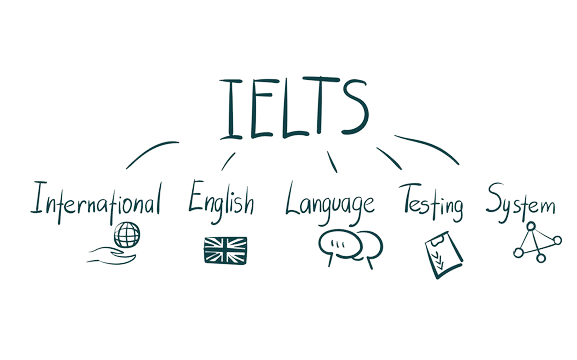 IELTS
International English Language Testing System